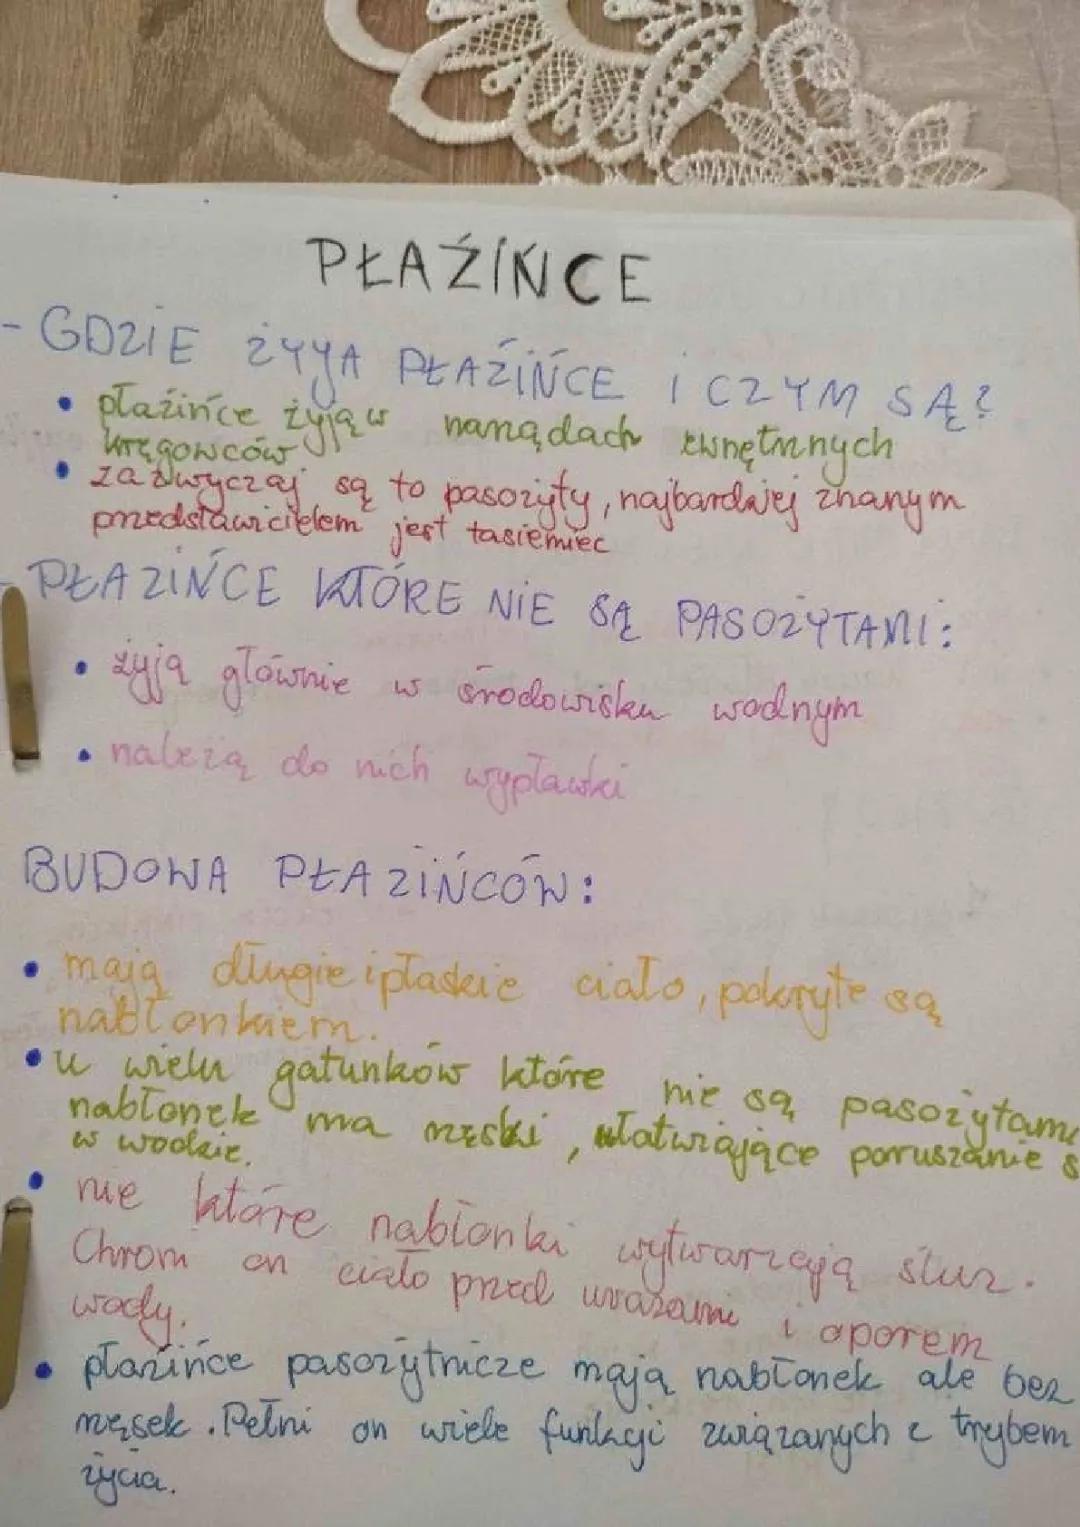 PŁAŹIŃCE
- GDZIE ŻYYJA PŁAŹIŃCE I CZYM SĄ?
• płaźińce żyją w narządach wewnętrznych
kręgowców
• zazwyczaj są to pasożyty, najbardziej znanym
przedstawicielem jest tasiemiec
- PŁAZIŃCE KTÓRE NIE SĄ PASOŻYTAMI:
• żyją głównie w środowisku wodnym
• należą do nich wypławki
BUDOWA PŁAZIŃCÓW:
• mają długie i płaskie ciało, pokryte są
nabłonkiem.
• u wielu gatunków które nie są pasożytami
nabłonek ma rzęski, ułatwiające poruszanie s
w wodzie.
• nie które nabłonki wytwarzają śluz.
Chroni on ciało przed urazami i oporem
wody.
• płazińce pasożytnicze mają nabłonek ale bez
rzęsek. Pełni on wiele funkcji związanych z trybem
życia.